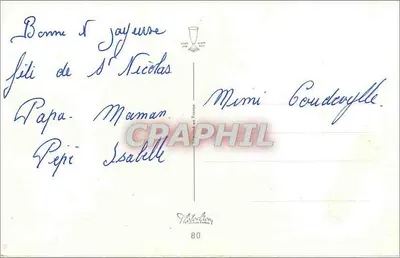 Bonne et joyeuse
fête de St Nicolas
Papa. Maman.
Pépé Isabelle
Mimi Coudevylle.
CPAPHIL
80